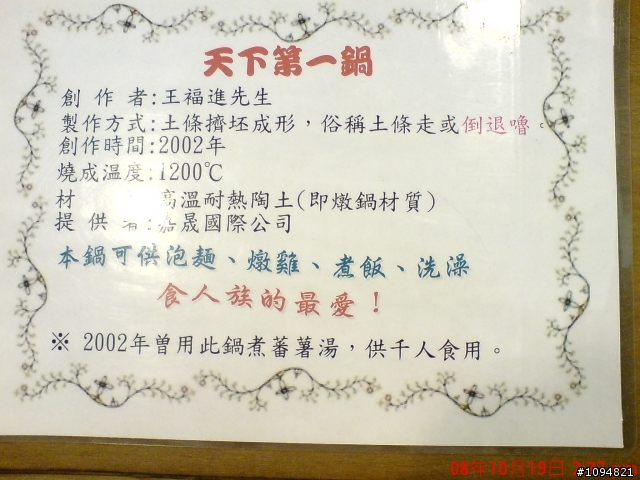 天下第一鍋
創 作 者:王福進先生
製作方式:土條擠坯成形，俗稱土條走或倒退嚕。
創作時間:2002年
燒成溫度:1200℃
材 高溫耐熱陶土(即燉鍋材質)
提 供 者:嘉晟國際公司
本鍋可供泡麵、燉雞、煮飯、洗澡
食人族的最愛！
※ 2002年曾用此鍋煮蕃薯湯，供千人食用。
08年10月19日
#1094821